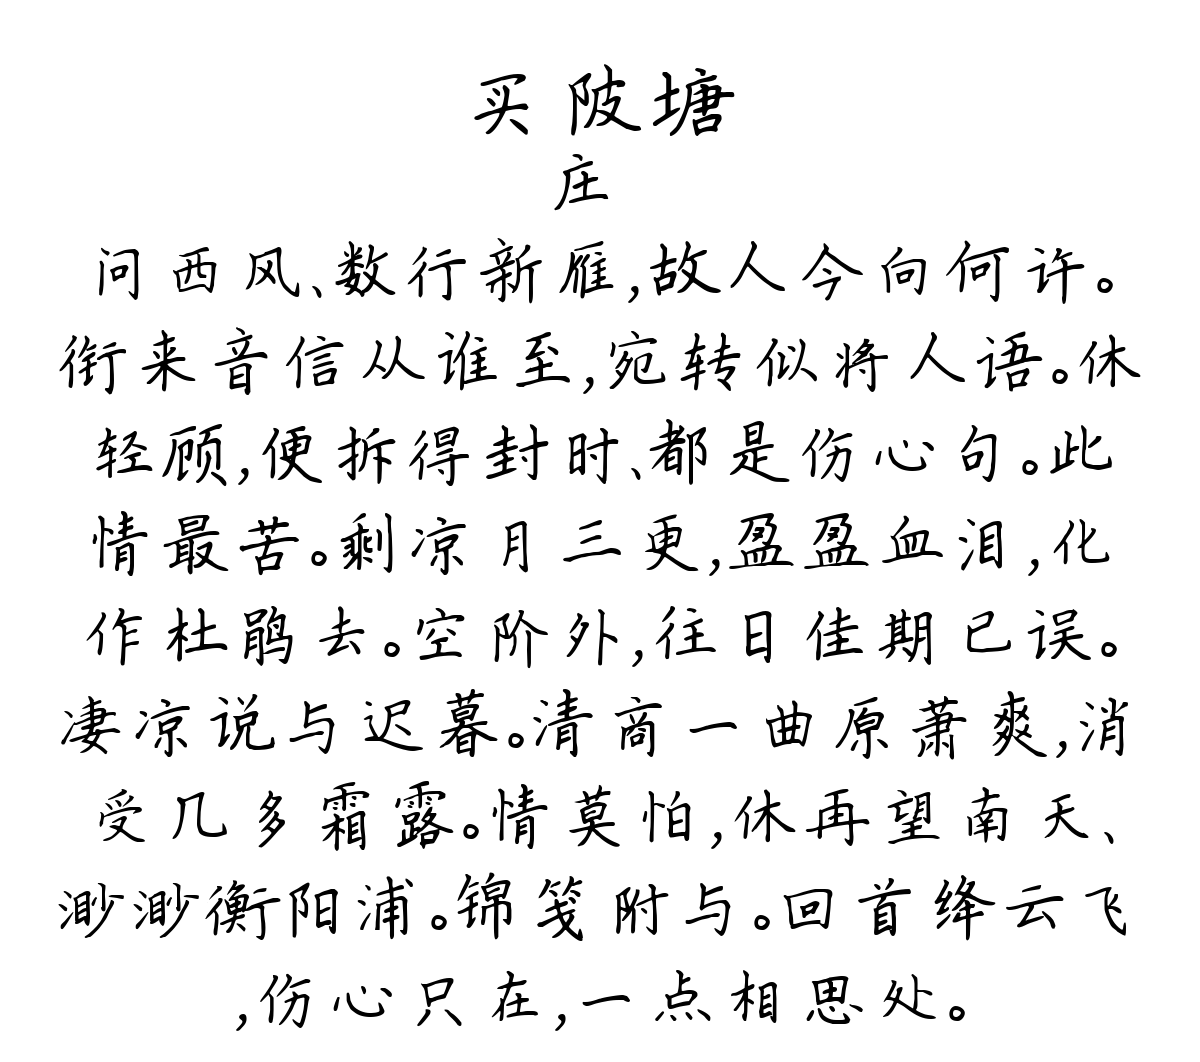 买陂塘
庄
问西风、数行新雁,故人今向何许。
衔来音信从谁至,宛转似将人语。休
轻顾,便拆得封时、都是伤心句。此
情最苦。剩凉月三更,盈盈血泪,化
作杜鹃去。空阶外,往日佳期已误。
凄凉说与迟暮。清商一曲原萧爽,消
受几多霜露。情莫怕,休再望南天、
渺渺衡阳浦。锦笺附与。回首绛云飞
,伤心只在,一点相思处。